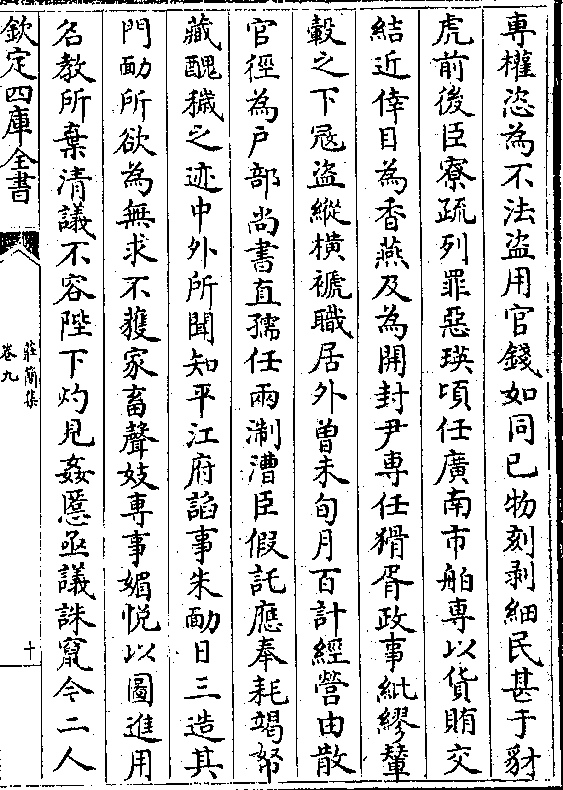 專權恣為不法盜用官錢如同已物刻剥細民甚于豺
虎前後臣寮疏列罪惡瑛頃任廣南市舶專以貨賄交
結近倖目為香燕及為開封尹專任猾胥政事紕繆輦
轂之下冦盜縱橫褫職居外曽未旬月百計經營由散
官徑為户部尚書直孺任兩淛漕臣假託應奉耗竭帑
藏醜穢之迹中外所聞知平江府諂事朱勔日三造其
門勔所欲為無求不獲家畜聲妓專事媚悦以圖進用
名教所棄清議不容陛下灼見姦慝亟議誅竄令二人
欽定四庫全書
莊簡集
卷九
十